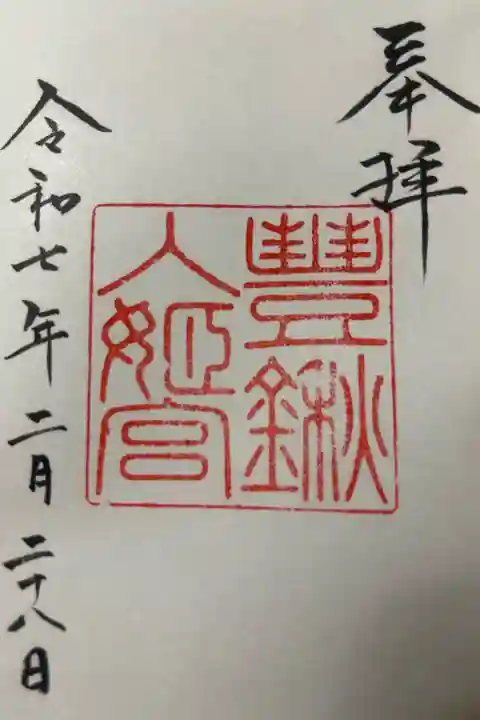 奉拝
豐鍬
入姫宮
令和七年二月二十八日